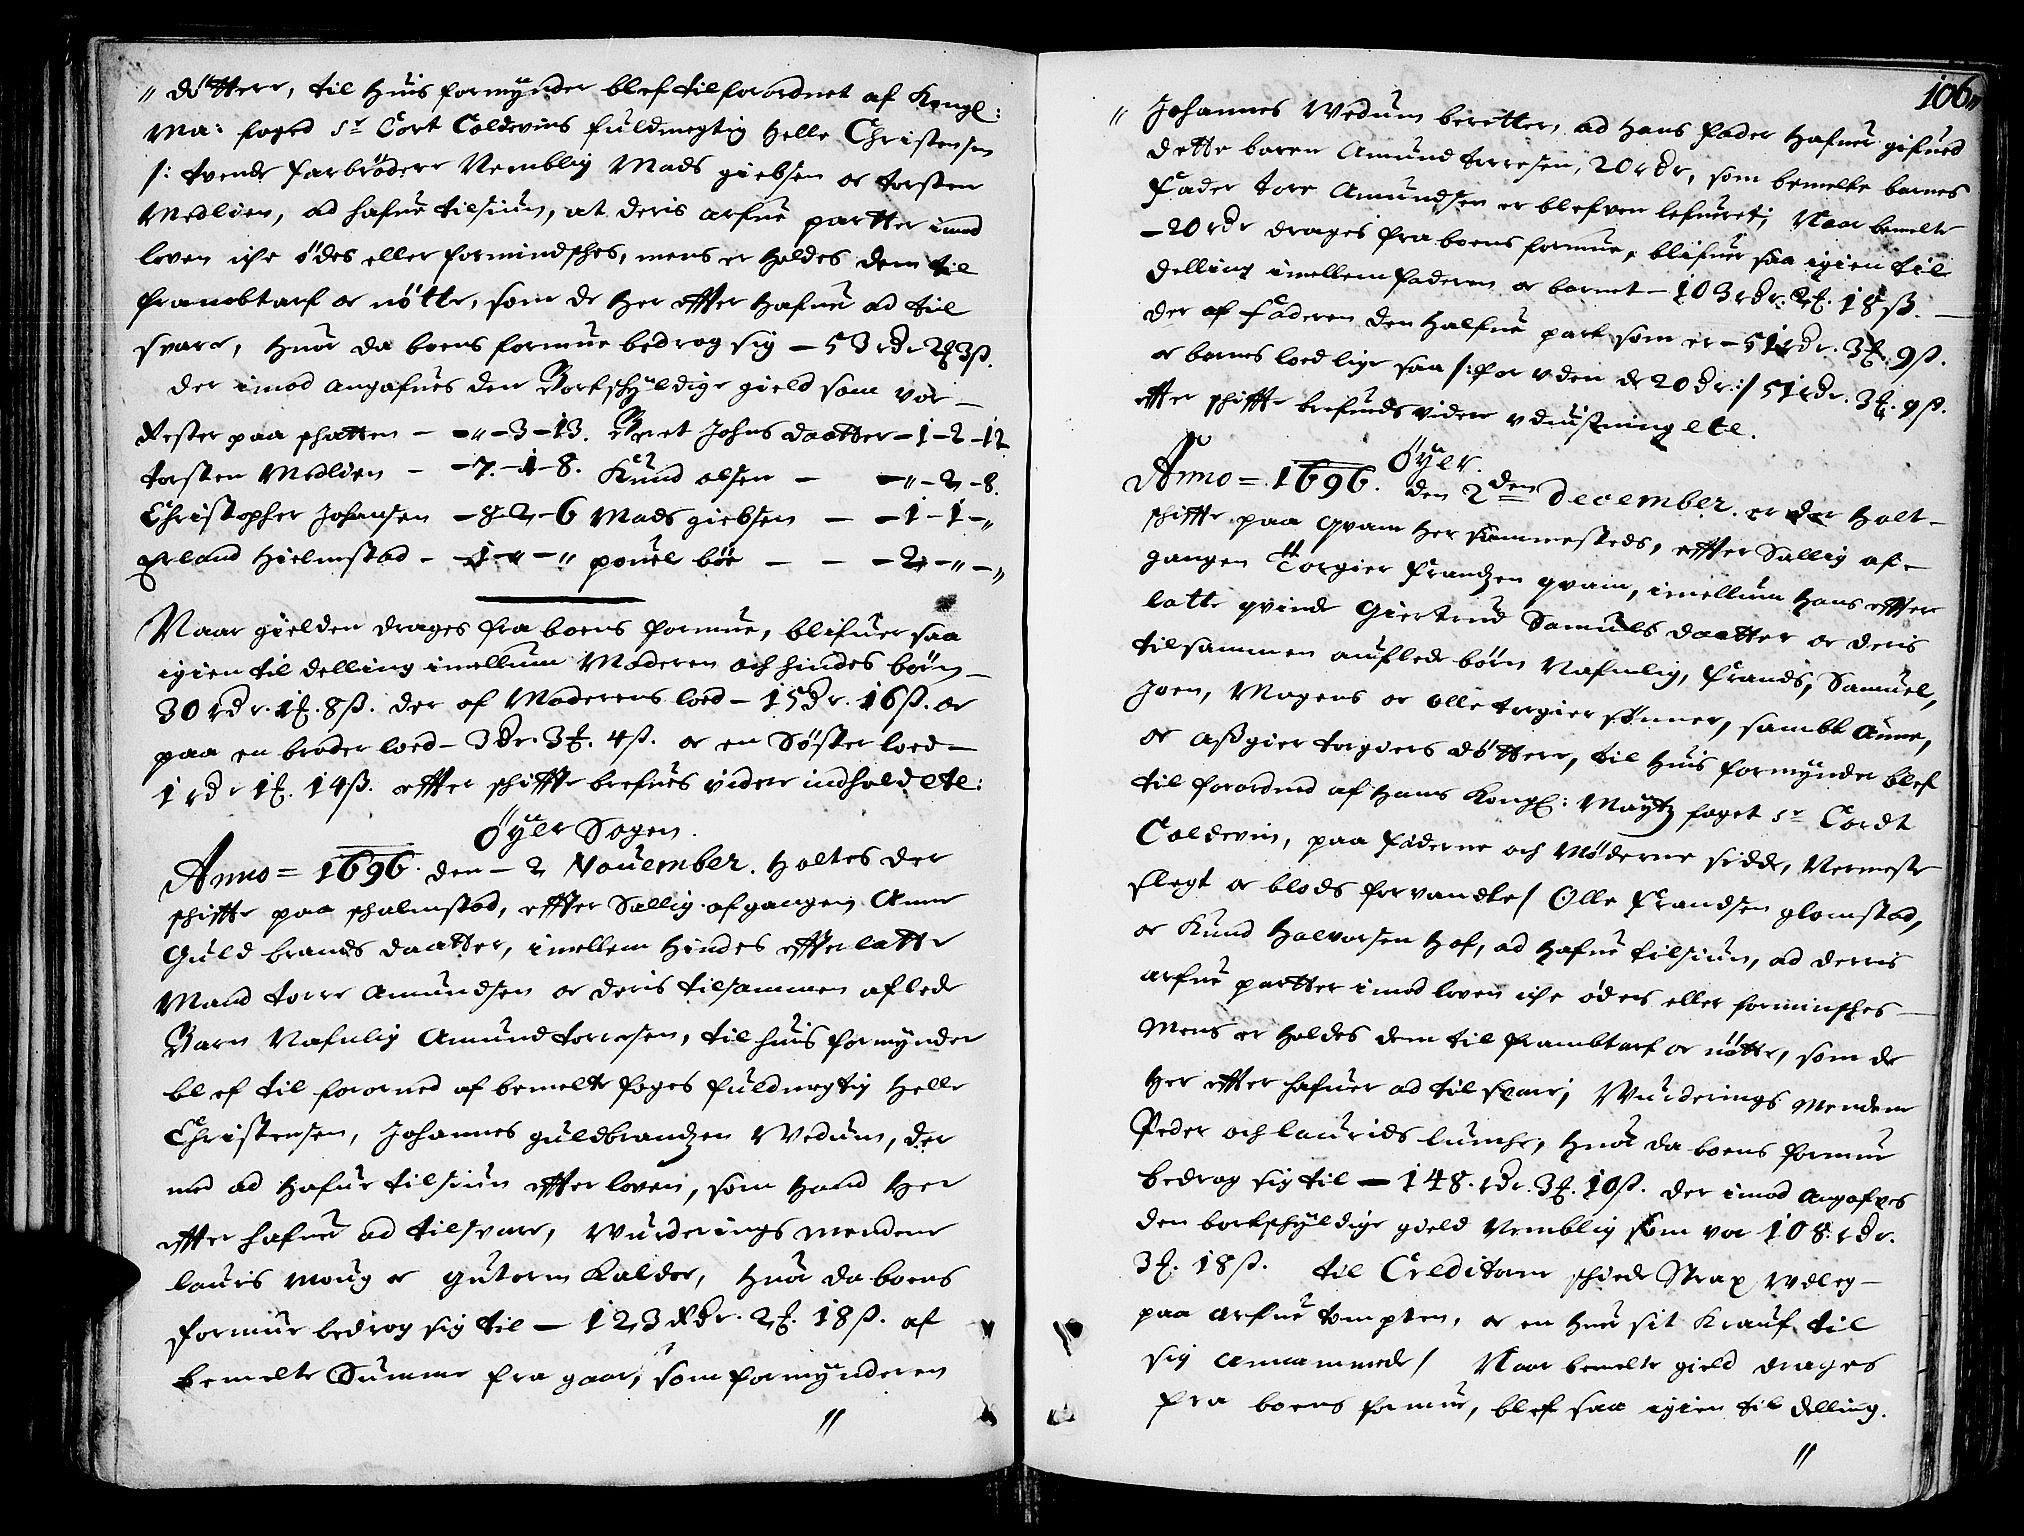 " døttere, til huis formynder blef tilforordnet af Kongl:
Ma: foged Sr Cort Coldevins fuldmegtig Helle Christensen
/: tvende farbrødere Nemblig Mads giebsen or torsten
Medlien, ad hafue tilsiun, at deris arfue partter imod
loven iche ødes eller formindsches, mens er holdes dem til
frambtarf or nøtte, som de her effter hafuer ad til
svare, huor da boens formue bedrog sig – 53 rdr 2 ꝥ 3 ß.
der imod angafues den Bortschyldige gield som vor –
Rester paa schatten – – " – 3 – 13. Beret Johns daatter – 1 – 2 – 12
torsten Medlien – – 7. – 1 – 8. Knud olsen – – " – 2 – 8.
Christopher Johansen – 8 – 2 – 6 Mads giebsen – – 1 – 1 – "
Erland Hielmstad – 1 – " – " pouel bøe – – – 2 – " – "
Naar gielden drages fra boens formue, blifuer saa
igien til delling imellum Moderen och hindes børn –
30 rdr. 1 ꝥ. 8 ß. der af Moderens loed – 15 dr. 16 ß. or
paa en broder loed – 3 dr. 3 ꝥ. 4 ß. or en Søster loed –
1 rdr 1 ꝥ. 14 ß. effter schiffte brefues videre indhold etc:
Øyer Sogen.
Anno = 1696. den – 2 Nouember. holtes der
schiffte paa schalmstad, effter Sallig afgangen Anne
Guldbrands daatter, imellem hindes efferlatte
Mand torre Amundsen or deris tilsammen aflede
Barn Nafnlig Amund torresen, til huis formynder
blef til fororned af bemelte foges fuldmegtig Helle
Christensen, Johannes guldbrandzen Wedum, der
med ad hafue tilsiun effter loven, som hand her
effter hafuer ad tilsvare, Wurderings mendene
lauris moug or gutorm Kalder, huor da boens
formue bedrog sig til – 123 Rdr. 2 ꝥ. 18 ß. af
bemelte Summe fra gaar, som formynderen
"
106 "
" Johannes Wedum beretter, ad hans fader hafuer gifued
dette baren Amund torresen, 20 rdr, som bemelte barnes
fader tore Amundsen er blefven lefueret; Naar bemelte
– 20 rdr drages fra boens formue, blifuer saa igien til
delling imellem faderen or barnet – 103 rdr. 2 ꝥ. 18 ß. –
der af faderen den halfue part som er – 51 rdr. 3 ꝥ. 9 ß.
or barnes loed lige saa /: for uden de 20 dr :/ 51 rdr. 3 ꝥ. 9 ß.
effter schiffte brefueds videre uduisning etc.
Øyer.
Anno = 1696. den 2 den December. er der Holt –
schiffte paa qvam her sammesteds, effter Sallig af –
gangen Torgier Frandzen qvam, imellum hans effter
latte qvinde Giertrud Samuels daatter or deris
tilsammen auflede børn Nafnlig, Frands, Samuel,
Joen, Mogens or Olle torgier sønner, sambt Anne,
or aßgier torgiers døttere, til huis formynder blef
til forordned af hans Kongl: Maytz foget Sr Cordt
Coldevin, paa fæderne och møderne sidde, Nermeste
slegt or blods forvandte / Olle Frandsen glomstad,
or Knud Halvorsen hof, ad hafue tilsiun, ad derris
arfue partter imod loven iche ødes eller forminsches –
mens er holdes dem til frambtarf or nøtte, som de
her effter hafuer ad tilsvare; Wurderings mendene
Peder och laurids lunche, huor da boens formue
bedrog sig til – 148. rdr. 3 ꝥ. 10 ß. der imod angafves
den bortschyldige gield Nemblig som var 108 rdr.
3 ꝥ. 18 ß. til Creditorne schiede strax Wdleg –
paa arfue tompten, or en huer sit Krauf til
sig annammede / Naar bemelte gield drages
fra boens formue, blef saa igien til delling.
"